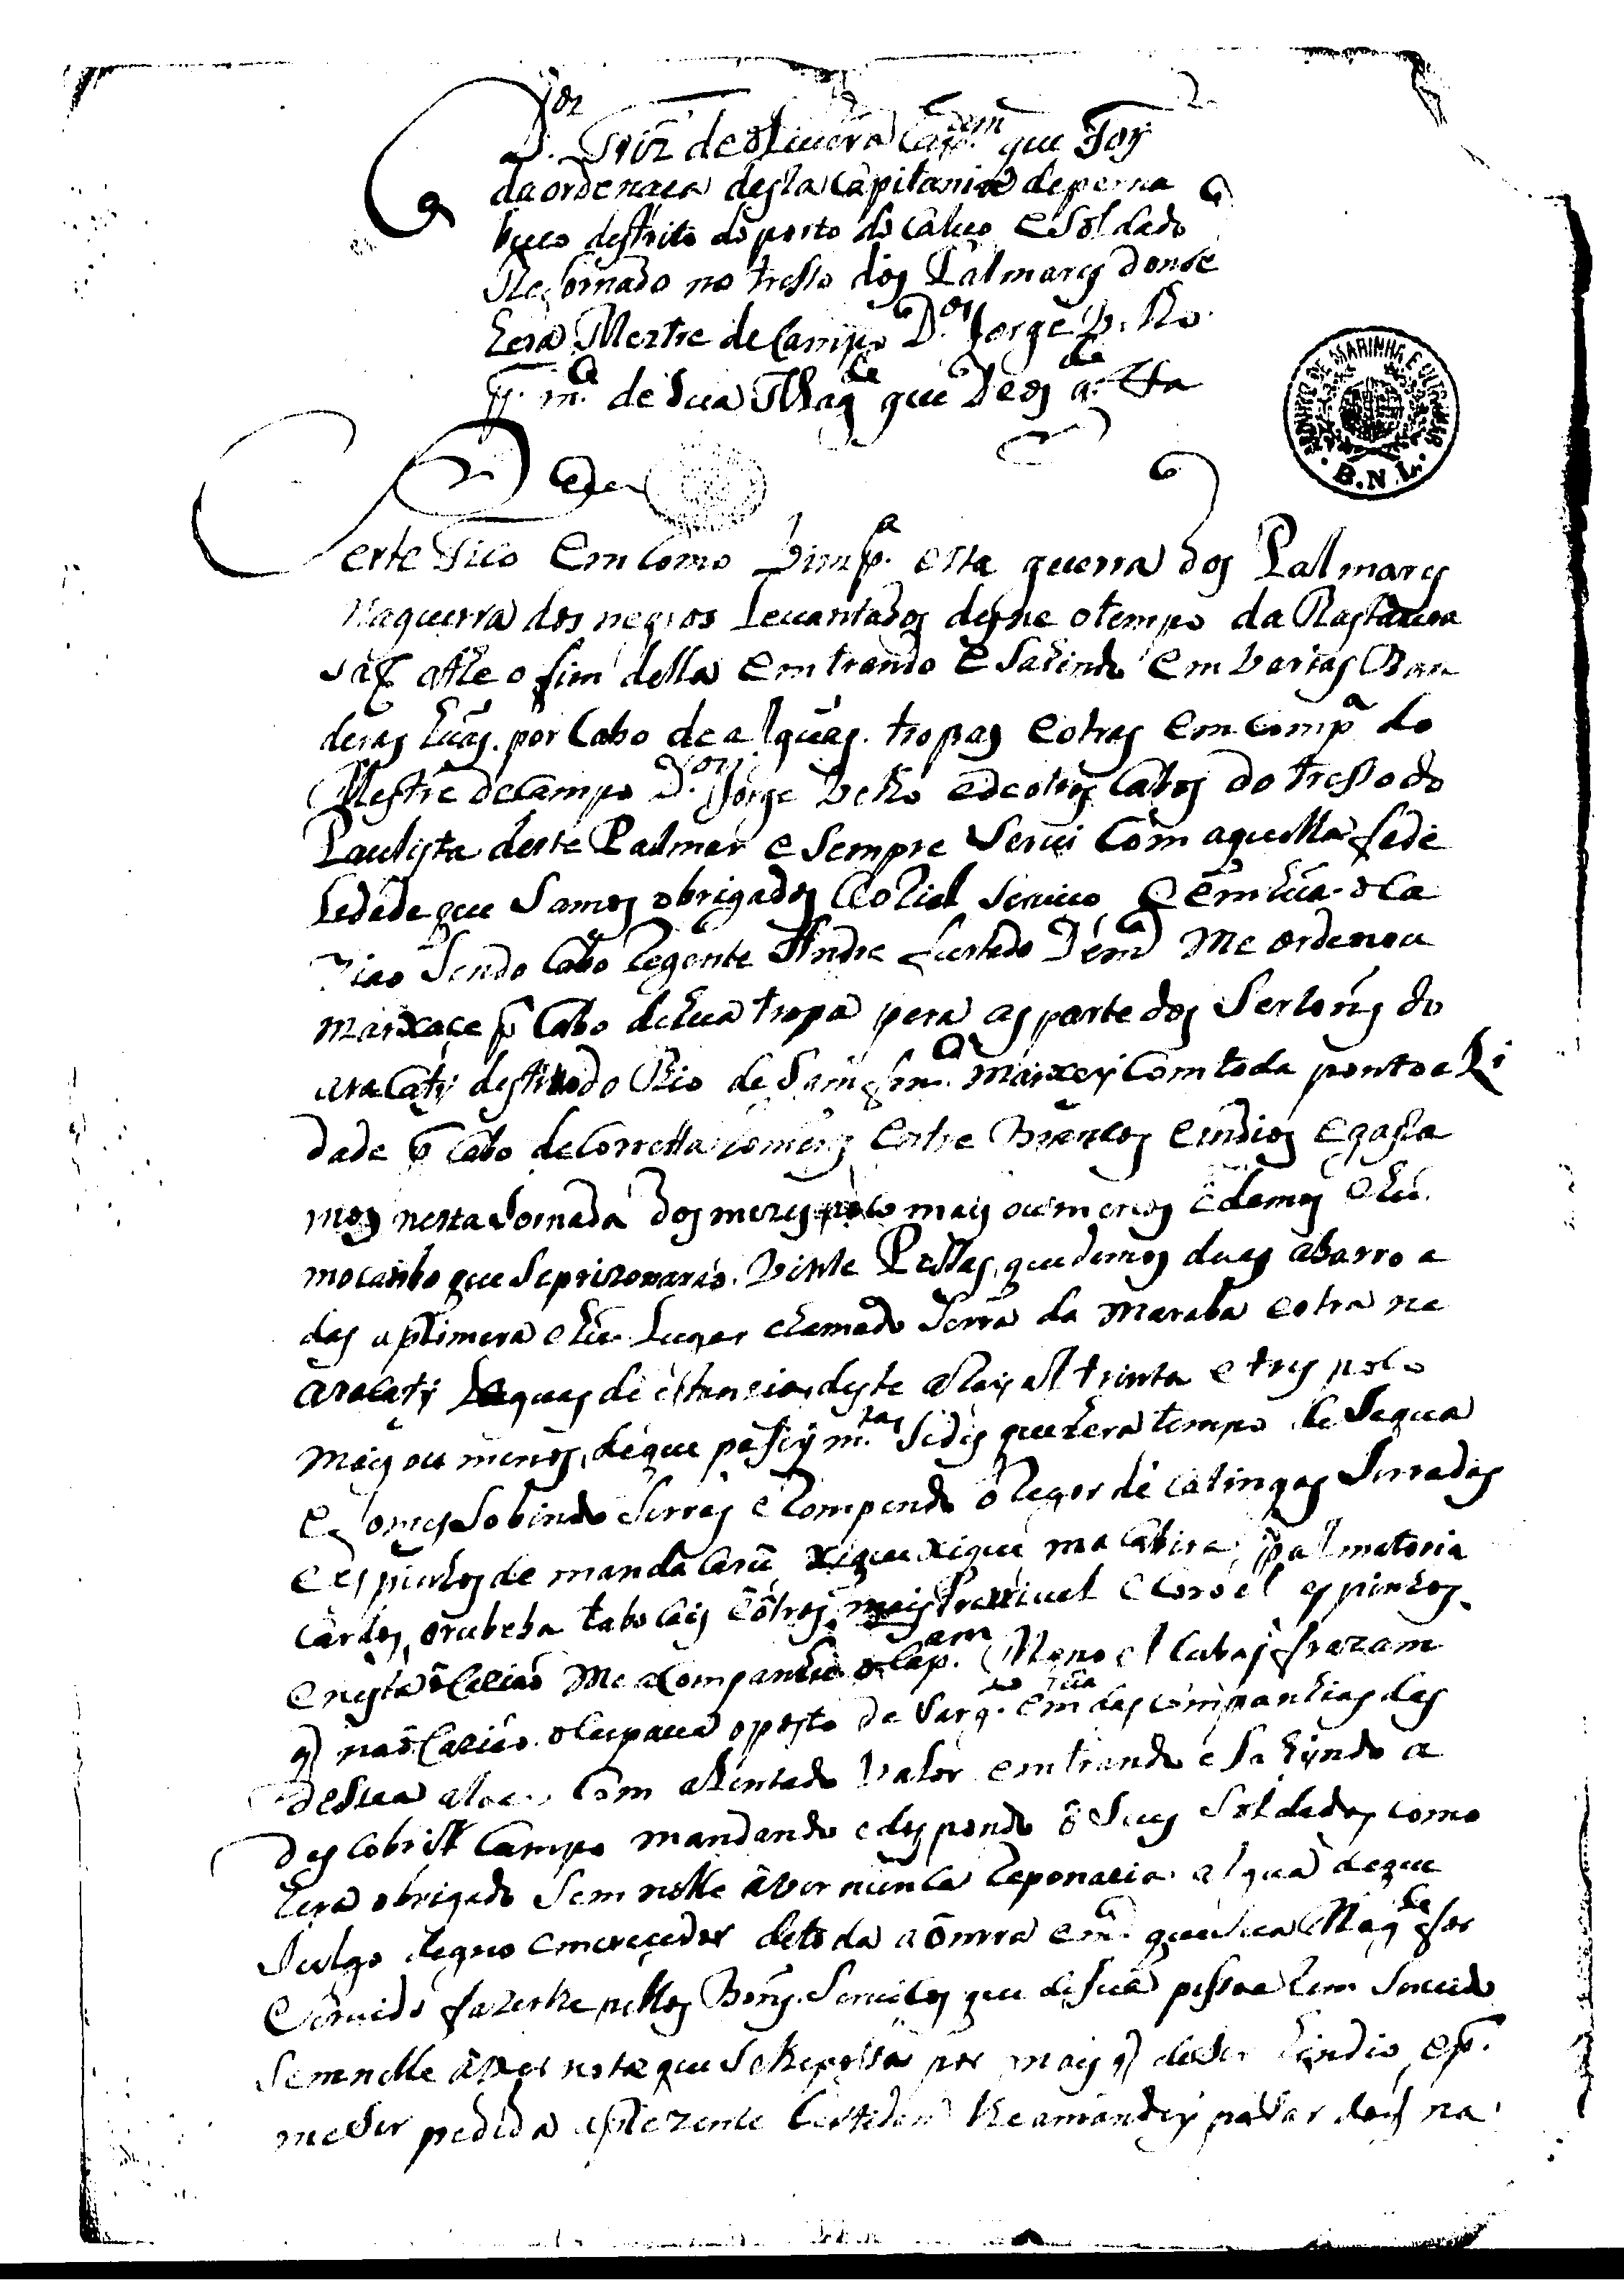 D.os Friz de oliueira Cap.am que Foy
da ordenaca desta Capitania de perna
buco destrito do porto do Caluo e Soldado
Reformado no tresso dos Palmares donde
hera Mestre de Campo D.os Jorge V.
p. m.ce de Sua Mag.de que Deos g.de etta
Certefico em como Vim p.a esta guerra dos Palmares
Na guerra dos negros Leuantados desne o tempo da Rastaura
saõ athe o fim della emtrando e sahindo em varias Ban
deras huãs por Cabo de alguãs tropas e otras em Comp.a do
Mestre de Campo D.os Jorge Velho e de otros Cabos do tresso do
Paulista deste Palmar e sempre Serui Com aquella fede
Ledade que Samos obrigados ao Rial Seruico e em hua oca
ziao Sendo Cabo Regente Andre furtado de m.ca me ordenou
marxace p Cabo de hua tropa pera as parte dos Sertoins do
araCaty destrito do Rio de Sam fr.co marxey Com toda pontoali
dade p Cabo de Corenta homens entre Brancos e indios e gasta
mos nesta Jornada dos mezes poco mais ou menos e demos e hũ
mocambo que se prizonarao Vinte Pessas que demos duas abarroa
das a primera e hũ Lugar chamado Serra da Maraba e otra na
aracaty Leguas de estancia deste a Rayal trinta e tres poco
mais ou menos de que pasey m.tas Sedes que hera tempo de Sequa
e fomes Sobindo Serras e Rompendo o Regor de catingas Serradas
e espinhos de mandaCarũ xiquexique macabira palmatoria
Cardos orubeba taboCas e otros mais teriuel e Coroel espinhos
e nesta oCaziaõ me aCompanhou o Cap.am Manoel Cubas frazam
q na oCaziao oCupaua o posto de Sarg.to em huã das Companhias das
de sua aldea Com alentado valor emtrando e sahindo a
desCobrir Campo mandando e despondo o Seus Soldados como
hera obrigado Sem nelle aver nunca Reponacia algua de que
Julgo degno e merecedor de toda a omrra e m.ce que sua Mag.de for
seruido fazerlhe pellos Bons Seruicos que de sua pessoa tem Seruido
Sem nelle aver nota que se lhe possa por mais q de ser hindio e p.
me ser pedida a prezente Certidam lhe a mandey passar da q na